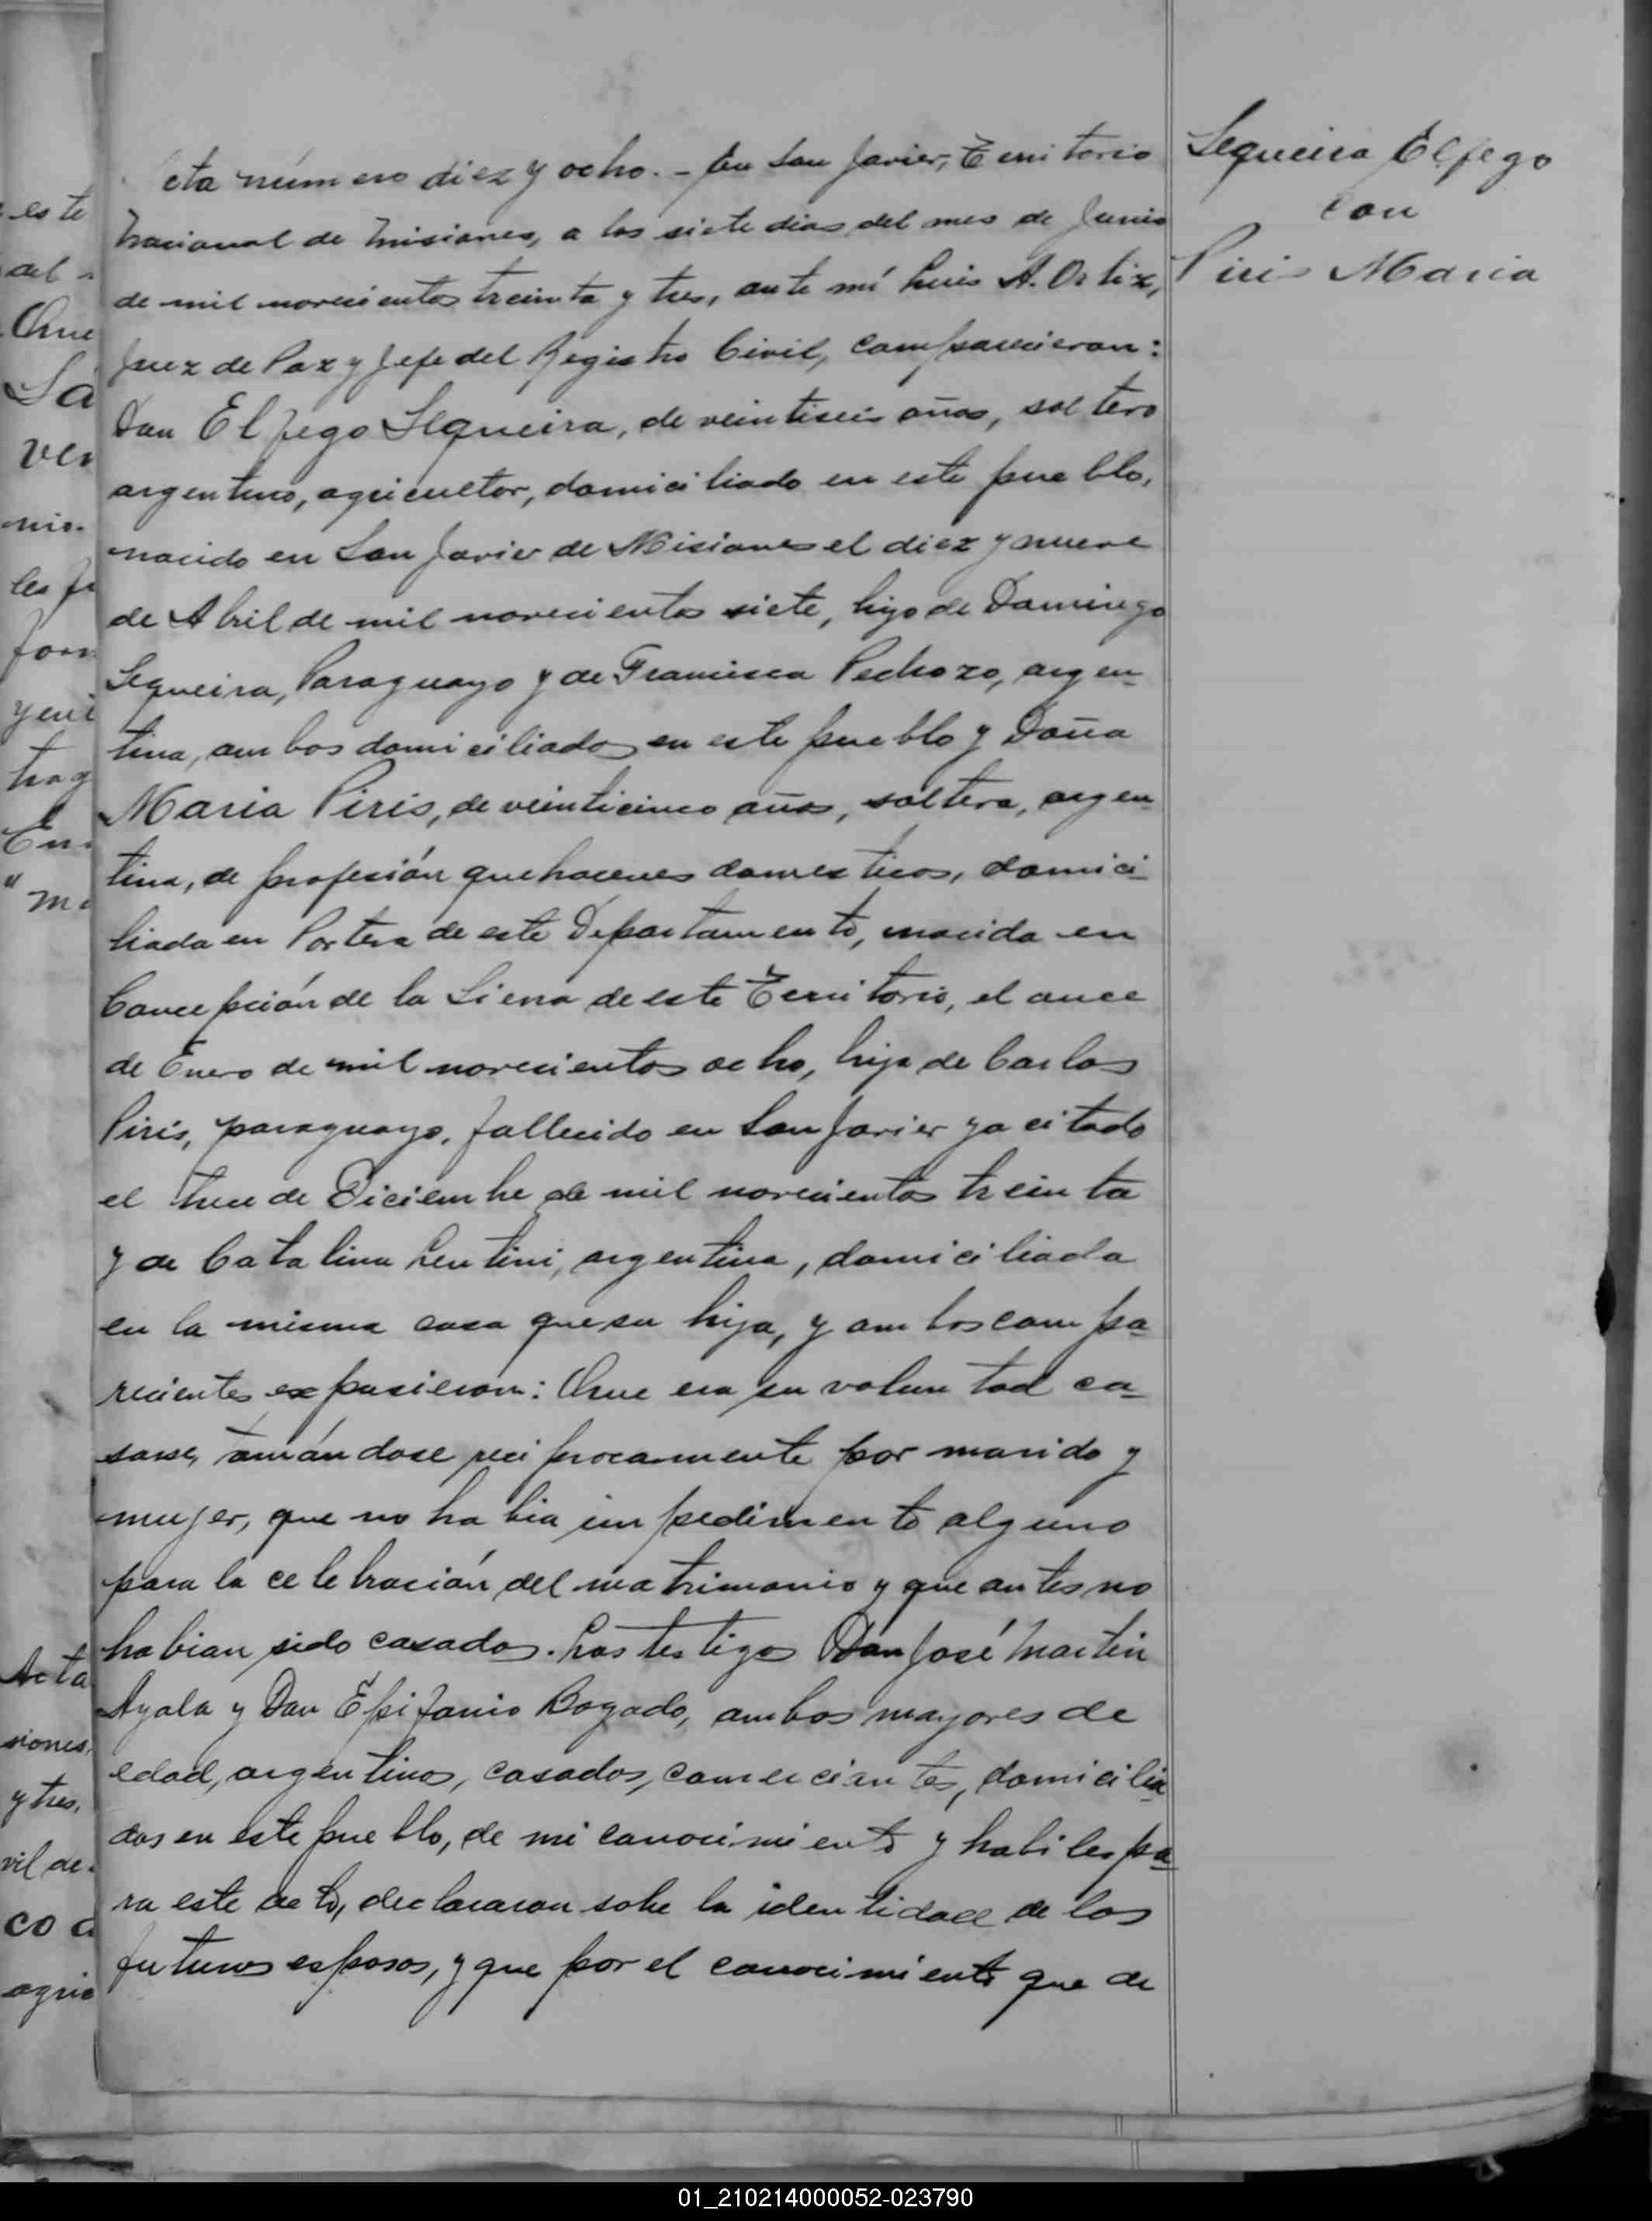 cta número diez y ocho. - En San Javier, Territorio
Nacional de Misiones, a los siete dias del mes de Junio
de mil novecientos treinta y tres, ante mí Luis A. Ortiz,
Juez de Paz y Jefe del Registro Civil, comparecieron:
Don Elfego Sequeira, de veintiseis años, soltero
argentino, agricultor, domiciliado en este pueblo,
nacido en San Javier de Misiones el diez y nueve
de Abril de mil novecientos siete, hijo de Domingo
Sequeira, Paraguayo y de Francisca Pedrozo, argen-
tina, ambos domiciliados en este pueblo y Doña
Maria Piris, de veinticinco años, soltera, argen
tina, de profesión quehaceres domesticos, domici-
liada en Portera de este Departamento, nacida en
Concepción de la Sierra de este Territorio, el once
de Enero de mil novecientos ocho, hija de Carlos
Piris, paraguayo, fallecido en San Javier ya citado
el trece de Diciembre de mil novecientos treinta
y de Catalina Lentini, argentina, domiciliada
en la misma casa que su hija, y ambos compa-
recientes expusieron: Que era su voluntad ca-
sarse, reciprocamente por marido y
mujer, que no habia impedimento alguno
para la celebración del matrimonio y que antes no
habian sido casados. Los testigos Don José Martin
Ayala y Don Epifanio Bogado, ambos mayores de
edad, argentinos, casados, comerciantes, domicilia
dos en este pueblo, de mi conocimiento y habiles pa-
ra este acto, declararon sobre la identidad de los
futuros esposos, y que por el conocimiento que de
Sequeira Elfego
con
Piris Maria
este
del
Que
Sa
ver
nio.
les
for
y eni
trag
En
Acta
siones,
y tres,
vil de
co
agric
01_210214000052-023790